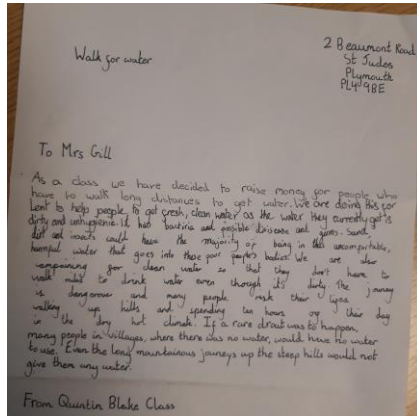 2 Beaumont Road
Walk for water
St Judes
Plymouth
PL4 9BE
To Mrs Gill
As a class we have decided to raise money for people who
have to walk long distances to get water. We are doing this for
Lent to help people to get fresh, clean water as the water they currently get is
dirty and unhygienic. It has bactiria and possible diseases and germs. Sand,
dirt and insects could have the majority of being in this uncomfortable,
harmful water that goes into these poor people's bodies. We are also
campaining for clean water so that they don't have to
walk miles to drink water even through it's dirty. The journey
is dangerous and many people risk their lives
walking up hills and spending ten hours of their day
in the dry hot climate. If a rare drout was to happen,
many people in villages, where there was no water, would have no water
to use. Even the long mountainous journeys up the steep hills would not
give them any water.
From Quintin Blake Class